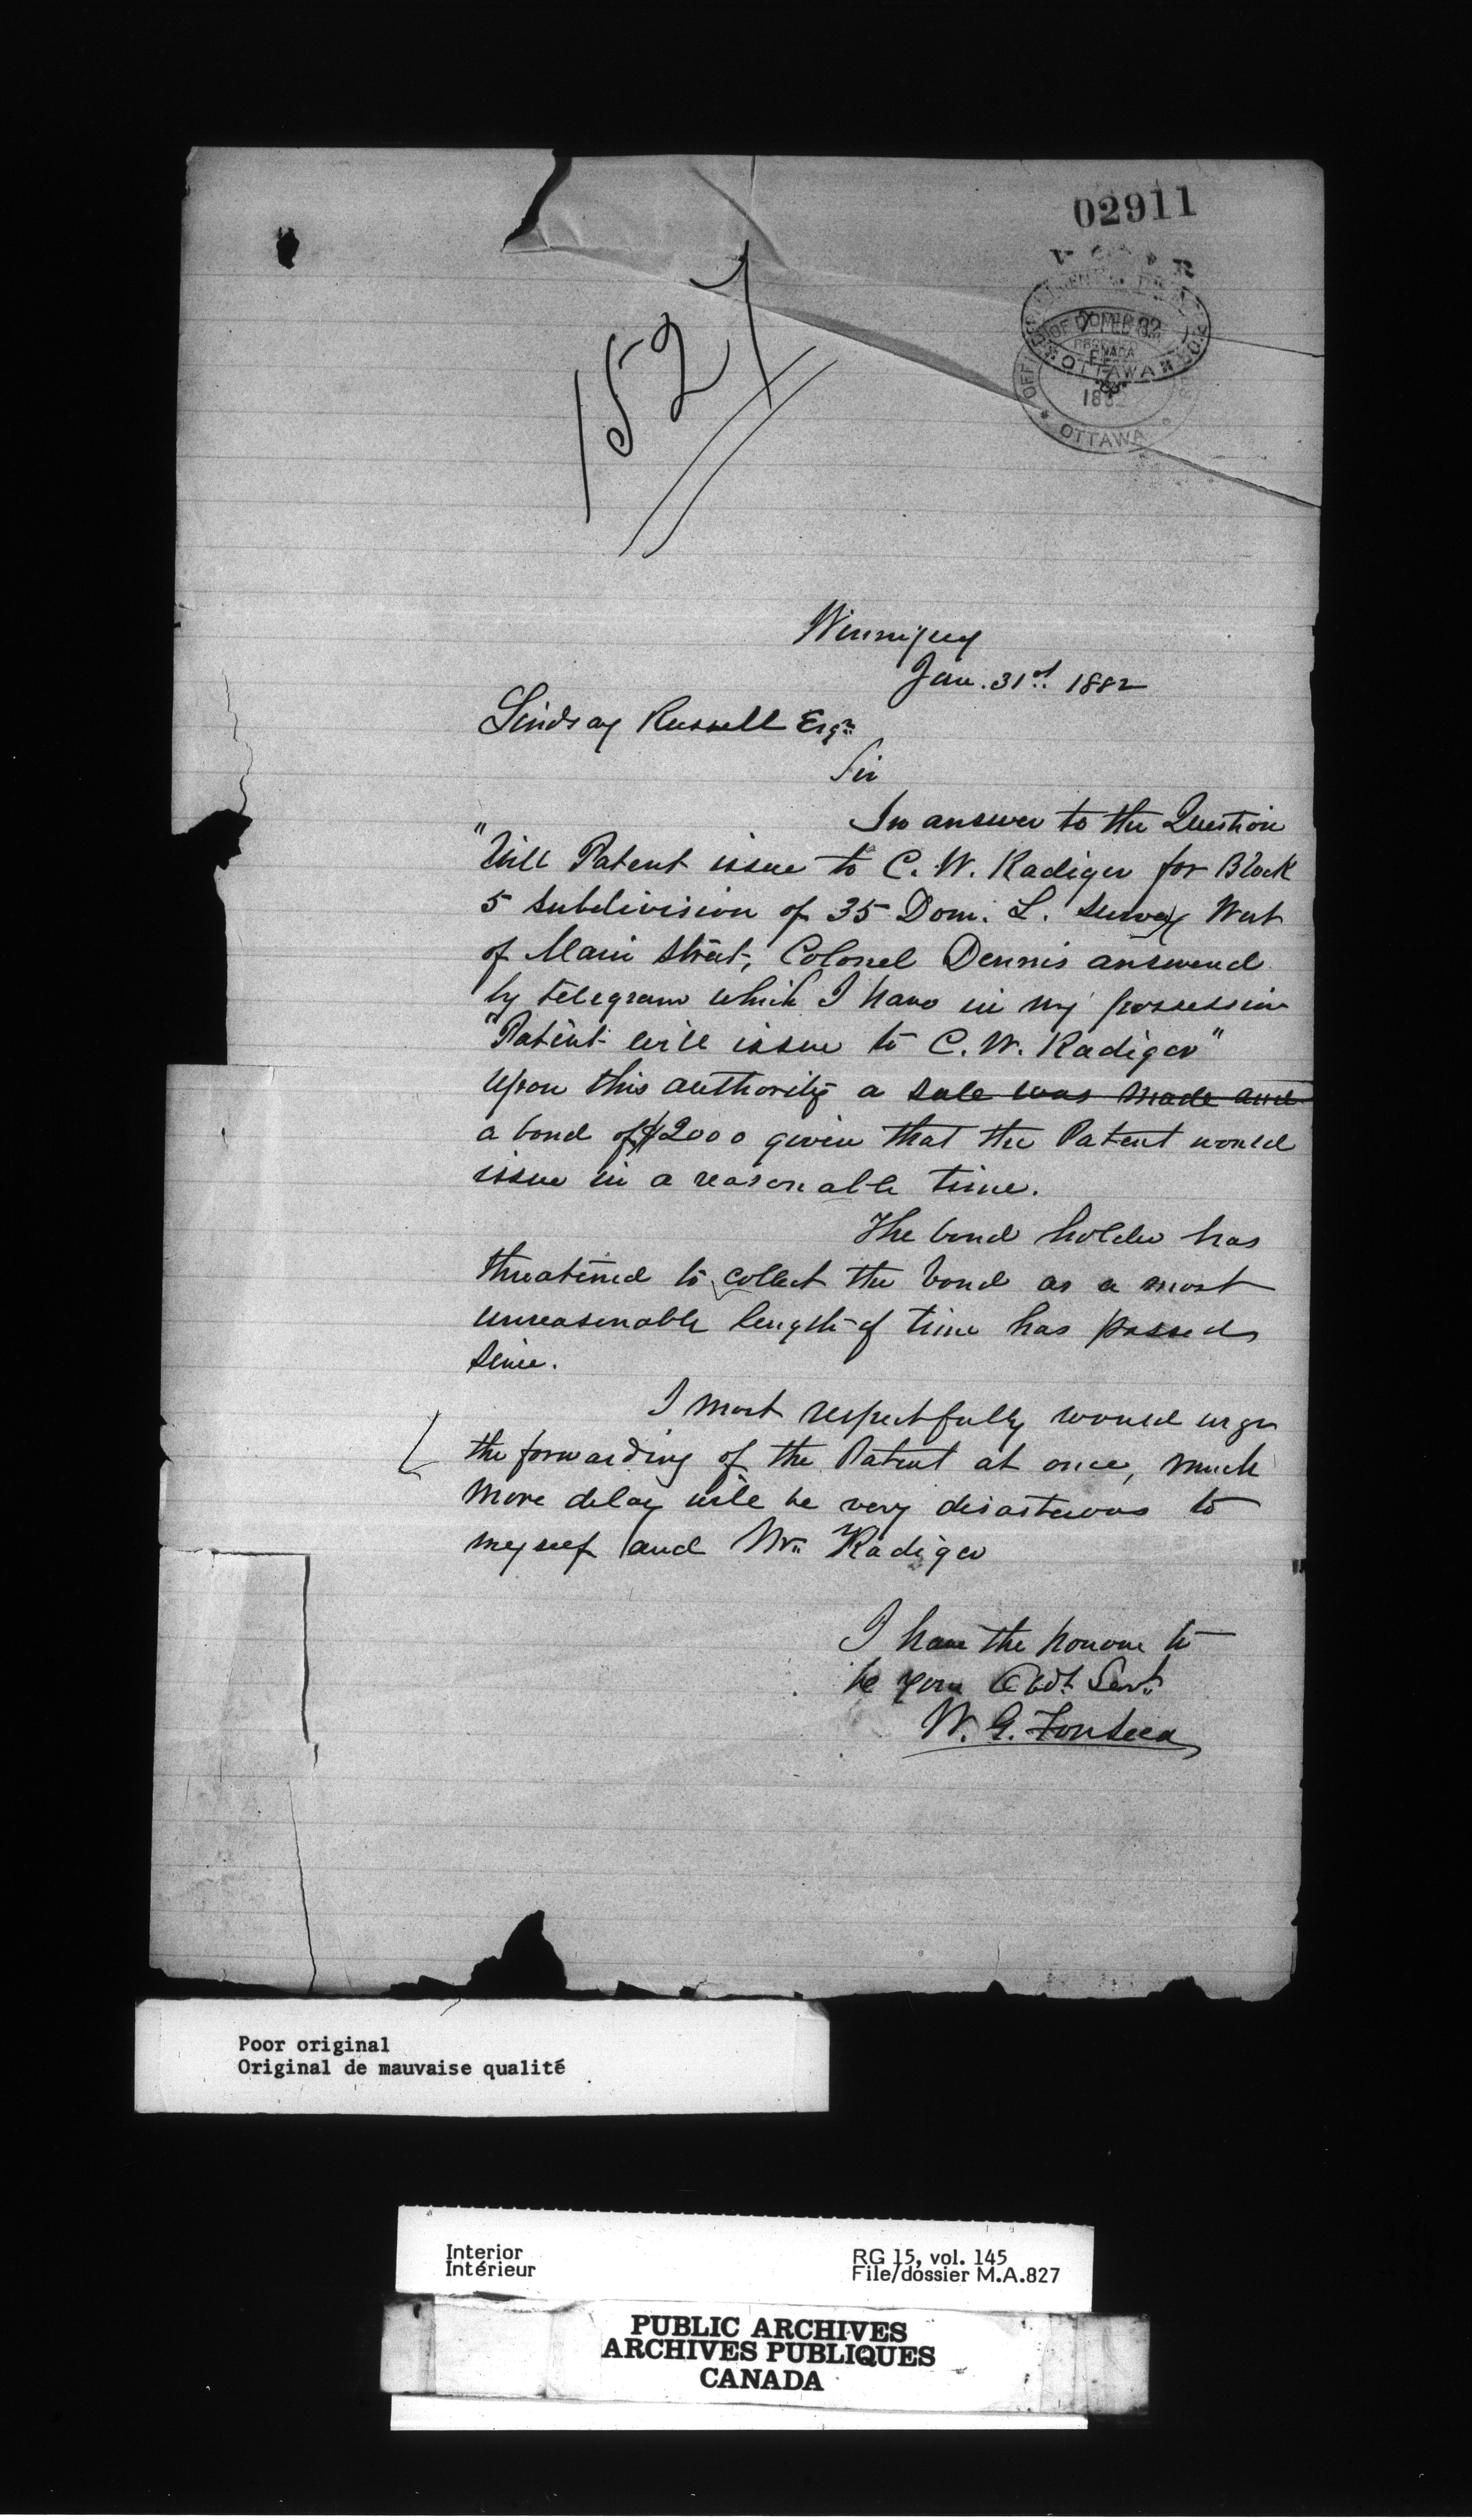 02911
1521
7 FEB 82
OTTAWA
1882
OTTAWA
Winnipeg
Jan. 31st. 1882
Lindsay Russell Esqr
Sir
In answer to the Question
"Will Patent issue to C. W. Radiger for Block
5 subdivision of 35 Dom. L. Survey West
of Main Street, Colonel Dennis answered
by telegram which I have in my possession
"Patent will issue to C. W. Radiger"
upon this authority a sale was made and
a bond of $2000 given that the Patent would
issue in a reasonable time.
The bond holder has
threatened to collect the bond as a most
unreasonable length of time has passed
since.
I most respectfully would urge
the forwarding of the Patent at once, much
more delay will be very disasterous to
myself and Mr Radiger
I have the honour to
be your Obdt Servt
W. G. Fonseca
Poor original
Original de mauvaise qualité
Interior
Intérieur
RG 15, vol. 145
File/dossier M.A.827
PUBLIC ARCHIVES
ARCHIVES PUBLIQUES
CANADA